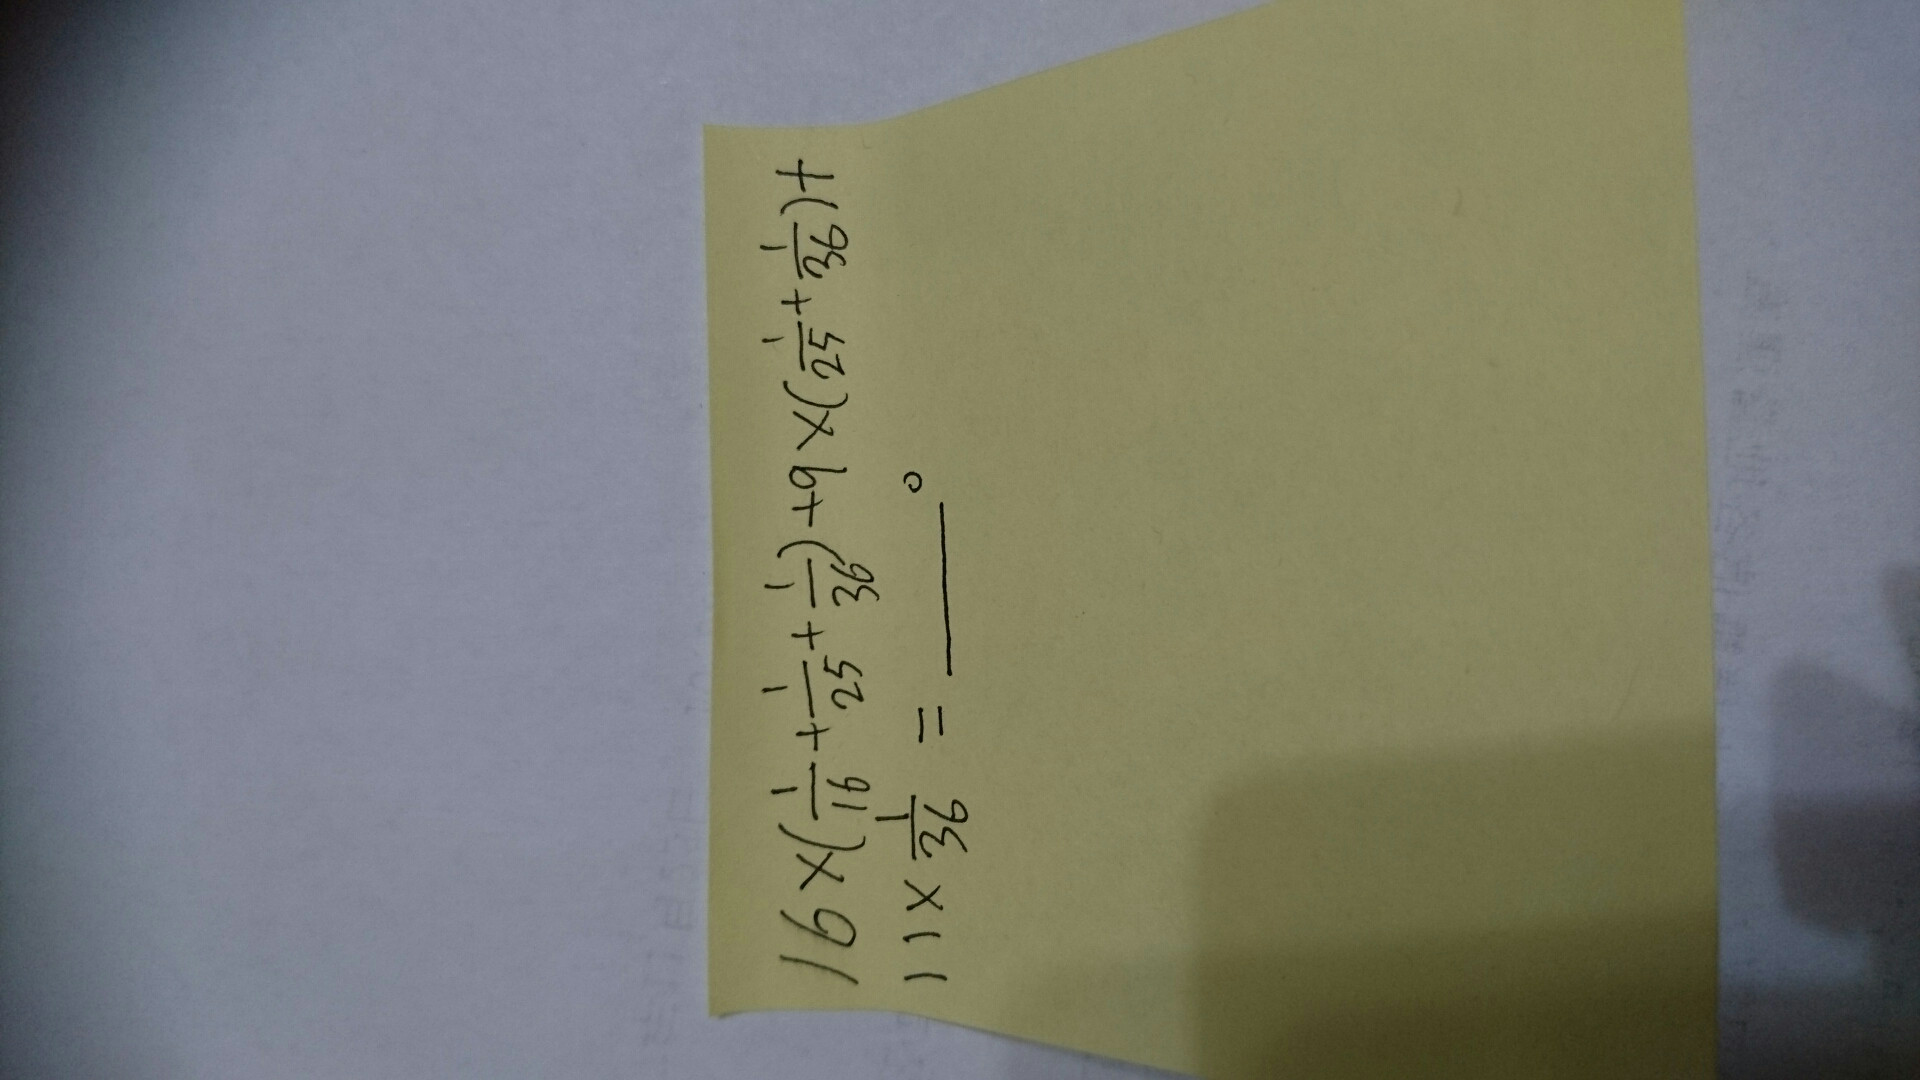 16×(1/16+1/25+1/36)+9×(1/25+1/36)+
11×1/36=____。